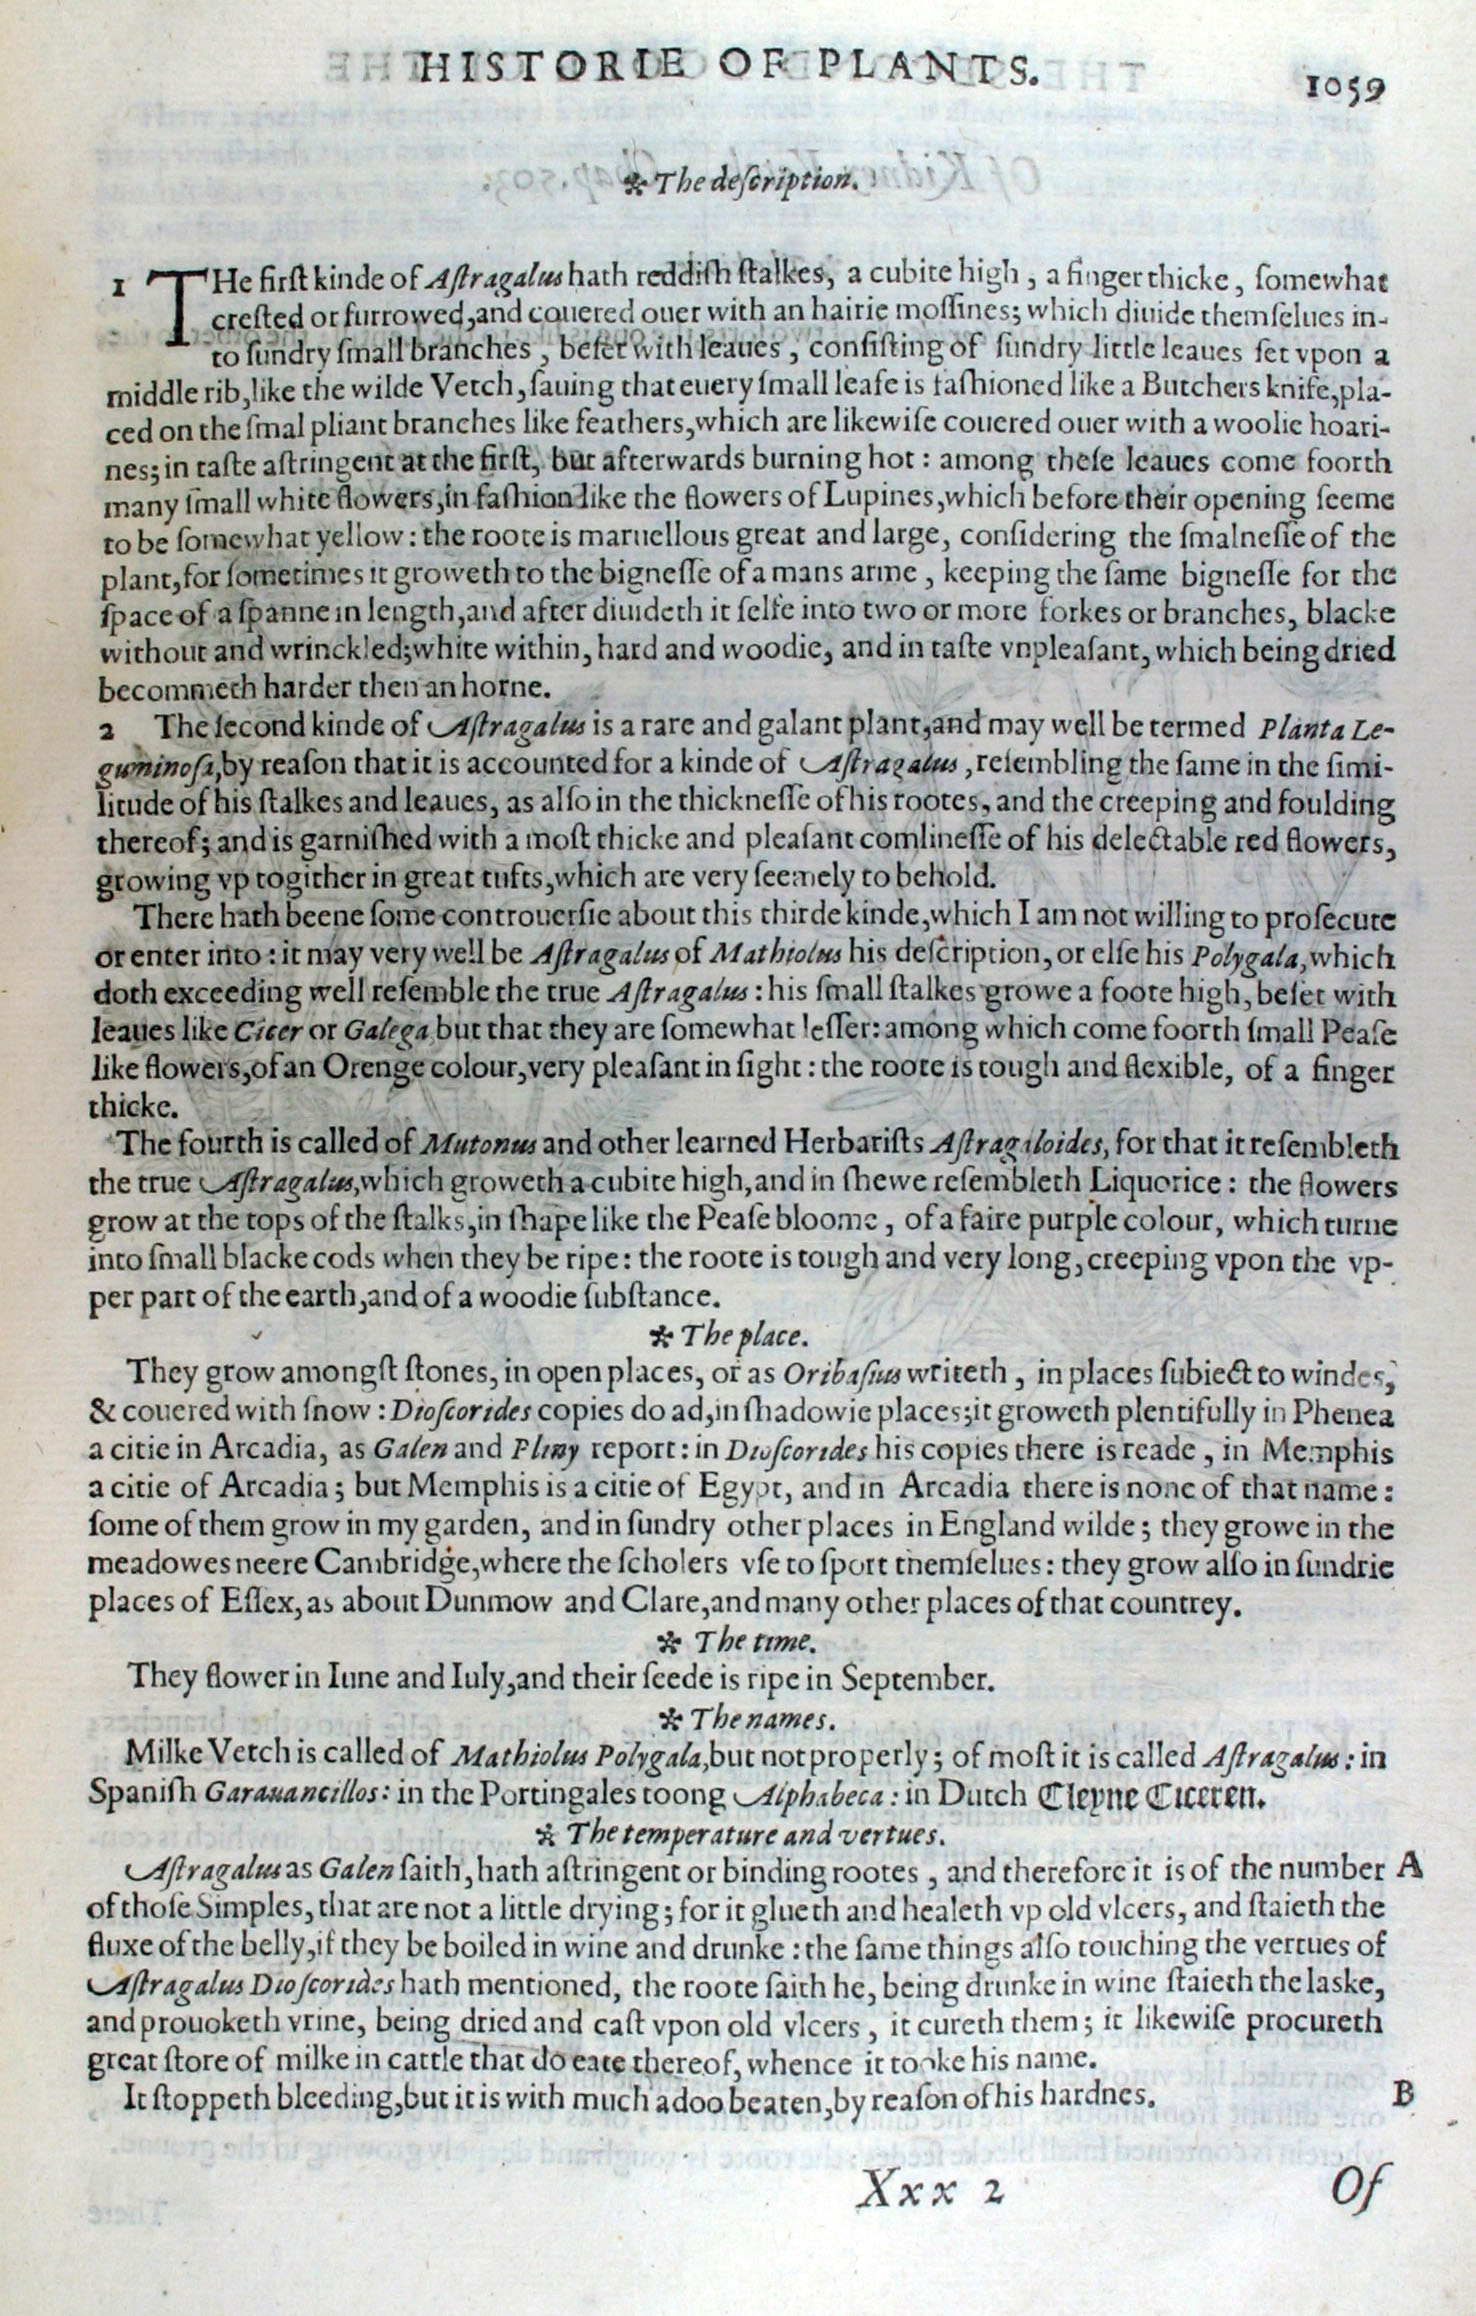 HISTORIE OF PLANTS.
1059
✲ The deſcription.
1 THe firſt kinde of Aſtragalus hath reddiſh ſtalkes, a cubite high, a finger thicke, ſomewhat
creſted or furrowed,and couered ouer with an hairie moſſines; which diuide themſelues in-
to ſundry ſmall branches, beſet with leaues, conſiſting of ſundry little leaues ſet vpon a
middle rib,like the wilde Vetch,ſauing that euery ſmall leafe is faſhioned like a Butchers knife,pla-
ced on the ſmal pliant branches like feathers,which are likewiſe couered ouer with a woolie hoari-
nes; in taſte aſtringent at the firſt, but afterwards burning hot: among theſe leaues come foorth
many ſmall white flowers,in faſhion like the flowers of Lupines,which before their opening ſeeme
to be ſomewhat yellow: the roote is maruellous great and large, conſidering the ſmalneſſe of the
plant,for ſometimes it groweth to the bigneſſe of a mans arme, keeping the ſame bigneſſe for the
ſpace of a ſpanne in length,and after diuideth it ſelfe into two or more forkes or branches, blacke
without and wrinckled;white within, hard and woodie, and in taſte vnpleaſant, which being dried
becommeth harder then an horne.
2 The ſecond kinde of Aſtragalus is a rare and galant plant,and may well be termed Planta Le-
guminoſa,by reaſon that it is accounted for a kinde of Aſtragalus, reſembling the ſame in the ſimi-
litude of his ſtalkes and leaues, as alſo in the thickneſſe of his rootes, and the creeping and foulding
thereof; and is garniſhed with a moſt thicke and pleaſant comlineſſe of his delectable red flowers,
growing vp togither in great tufts,which are very ſeemely to behold.
There hath beene ſome controuerſie about this thirde kinde,which I am not willing to proſecute
or enter into: it may very well be Aſtragalus of Mathiolus his deſcription, or elſe his Polygala,which
doth exceeding well reſemble the true Aſtragalus: his ſmall ſtalkes growe a foote high, beſet with
leaues like Cicer or Galega but that they are ſomewhat leſſer: among which come foorth ſmall Peaſe
like flowers,of an Orenge colour,very pleaſant in ſight: the roote is tough and flexible, of a finger
thicke.
The fourth is called of Mutonus and other learned Herbariſts Aſtragaloides, for that it reſembleth
the true Aſtragalus,which groweth a cubite high,and in ſhewe reſembleth Liquorice: the flowers
grow at the tops of the ſtalks,in ſhape like the Peaſe bloome, of a faire purple colour, which turne
into ſmall blacke cods when they be ripe: the roote is tough and very long, creeping vpon the vp-
per part of the earth,and of a woodie ſubſtance.
✲ The place.
They grow amongſt ſtones, in open places, or as Oribaſius writeth, in places ſubiect to windes,
& couered with ſnow: Dioſcorides copies do ad,in ſhadowie places;it groweth plentifully in Phenea
a citie in Arcadia, as Galen and Pliny report: in Dioſcorides his copies there is reade, in Memphis
a citie of Arcadia; but Memphis is a citie of Egypt, and in Arcadia there is none of that name:
ſome of them grow in my garden, and in ſundry other places in England wilde; they growe in the
meadowes neere Cambridge,where the ſcholers vſe to ſport themſelues: they grow alſo in ſundrie
places of Eſſex, as about Dunmow and Clare,and many other places of that countrey.
✲ The time.
They flower in Iune and Iuly,and their ſeede is ripe in September.
✲ The names.
Milke Vetch is called of Mathiolus Polygala,but not properly; of moſt it is called Aſtragalus: in
Spaniſh Garauancillos: in the Portingales toong Alphabeca: in Dutch Cleyne Ciceren.
✲ The temperature and vertues.
Aſtragalus as Galen ſaith, hath aſtringent or binding rootes, and therefore it is of the number A
of thoſe Simples, that are not a little drying; for it glueth and healeth vp old vlcers, and ſtaieth the
fluxe of the belly,if they be boiled in wine and drunke: the ſame things alſo touching the vertues of
Aſtragalus Dioſcorides hath mentioned, the roote ſaith he, being drunke in wine ſtaieth the laske,
and prouoketh vrine, being dried and caſt vpon old vlcers, it cureth them; it likewiſe procureth
great ſtore of milke in cattle that do eate thereof, whence it tooke his name.
It ſtoppeth bleeding,but it is with much adoo beaten,by reaſon of his hardnes. B
Xxx 2
Of